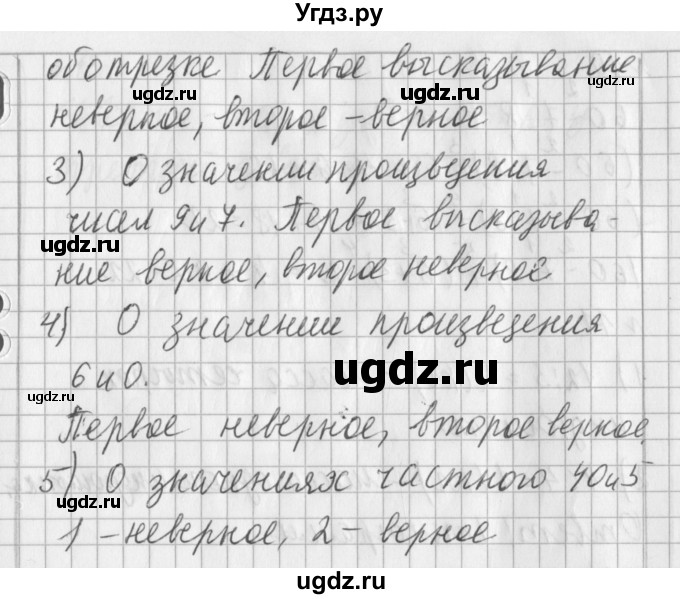 Угдз.ру
об отрезке Первое высказывание
ugdz.ru ugdz.ru
неверное, второе – верное
3) О значении произведения
чисел 9 и 7. Первое высказыва-
ugdz.ru
ние верное, второе неверное
4) О значении произведения
6 и 0. ugdz.ru
ugdz.ru
Первое неверное, второе верное.
5) О значениях частного 40 и 5
ugdz.ru ugdz.ru
1 – неверное, 2 – верное
ugdz.ru